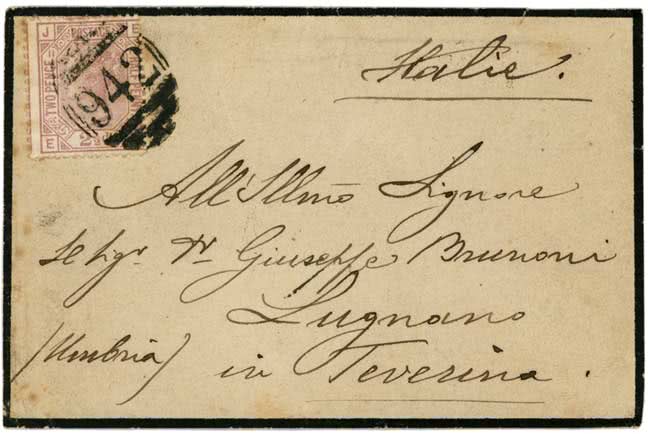 J POSTAGE E
TWO PENCE
E 2½
942
Italie.
All'Illmo Signore
Il Sigr Dr Giuseppe Brunoni
Lugnano
(Umbria) in Teverina.